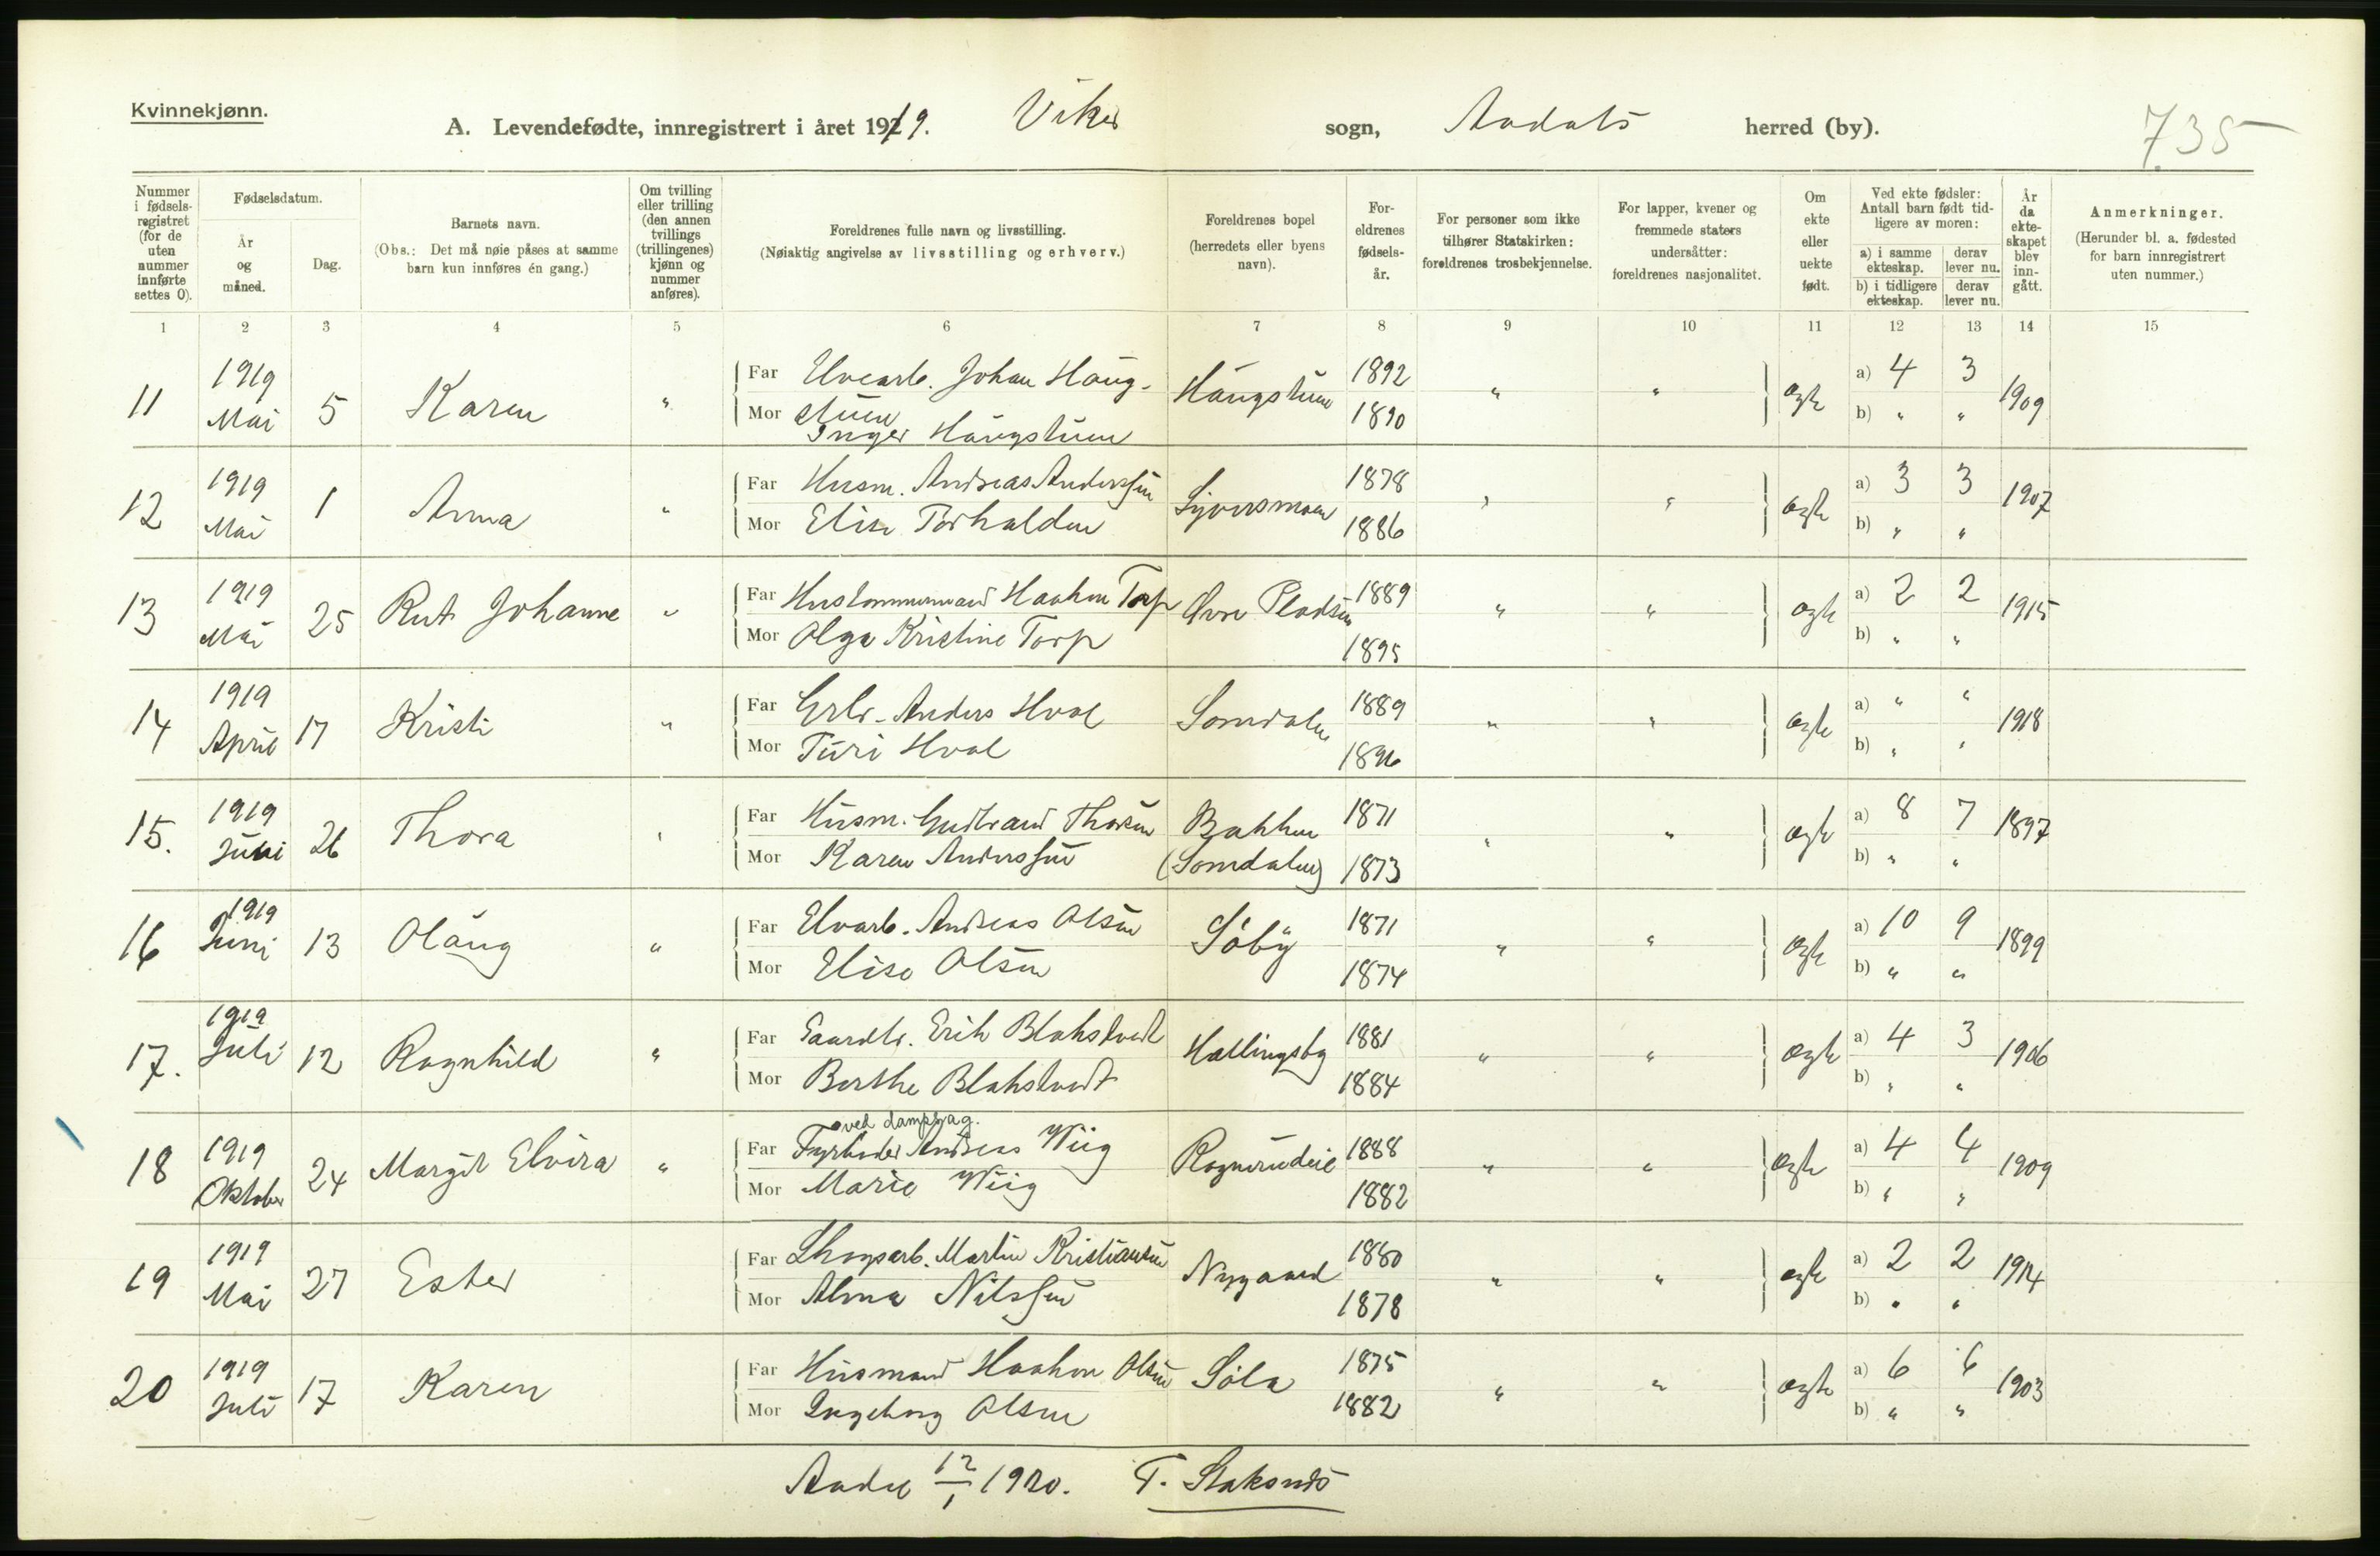 Kvinnekjønn.
A. Levendefødte, innregistrert i året 1919. Viker sogn, Aadals herred (by).
735
Nummer i fødsels-registret (for de uten nummer innførte settes 0).
Fødselsdatum.
År og måned.
Dag.
Barnets navn.
(Obs.: Det må nøie påses at samme barn kun innføres én gang.)
Om tvilling eller trilling (den annen tvillings (trillingenes) kjønn og nummer anføres).
Foreldrenes fulle navn og livsstilling.
(Nøiaktig angivelse av livsstilling og erhverv.)
Foreldrenes bopel (herredets eller byens navn).
For-eldrenes fødsels-år.
For personer som ikke tilhører Statskirken: foreldrenes trosbekjennelse.
For lapper, kvener og fremmede staters undersåtter: foreldrenes nasjonalitet.
Om ekte eller uekte født.
Ved ekte fødsler: Antall barn født tid-ligere av moren:
a) i samme ekteskap.
derav lever nu.
b) i tidligere ekteskap.
derav lever nu.
År da ekte-skapet blev inn-gått.
Anmerkninger.
(Herunder bl. a. fødested for barn innregistrert uten nummer.)
1 2 3 4 5 6 7 8 9 10 11 12 13 14 15
11 1919 Mai 5 Karen " Far Elvearb. Johan Haug-stuen Haugstuen 1892 " " ægte a) 4 3 1909
Mor Inger Haugstuen 1890 b) " "
12 1919 Mai 1 Anna " Far Husm. Andreas Anderssen 1878 " " ægte a) 3 3 1907
Mor Elise 1886 b) " "
13 1919 Mai 25 Rut Johanne " Far Haakon Torp Øvre Pladsen 1889 " " ægte a) 2 2 1915
Mor Olga Kristine Torp 1895 b) " "
14 1919 April 17 Kristi " Far Grbr. Anders Hval Somdalen 1889 " " ægte a) " " 1918
Mor Turi Hval 1896 b) " "
15. 1919 Juni 26 Thora " Far Husm. Gudbrand Thorsen Bakken 1871 " " ægte a) 8 7 1897
Mor Karen Anderssen (Somdalen) 1873 b) " "
16 1919 Juni 13 Olaug " Far Elvarb. Andreas Olsen Søby 1871 " " ægte a) 10 9 1899
Mor Elise Olsen 1874 b) " "
17. 1919 Juli 12 Ragnhild " Far Gaardbr. Erik Blakstvedt Hallingsby 1881 " " ægte a) 4 3 1906
Mor Berthe Blakstvedt 1884 b) " "
18 1919 Oktober 24 Margit Elvira " Far Fyrbøder ved dampsag. Andreas Wiig 1888 " " ægte a) 4 4 1909
Mor Marie Wiig 1882 b) " "
19 1919 Mai 27 Ester Far Skogsarb. Martin Kristiansen Nygaard 1880 " " ægte a) 2 2 1914
Mor Alma Nilssen 1878 b) " "
20 1919 Juli 17 Karen Far Husmand Haakon Olsen Søla 1875 " " ægte a) 6 6 1903
Mor Ingeborg Olsen 1882 b) " "
Aadal 12/1 1920.